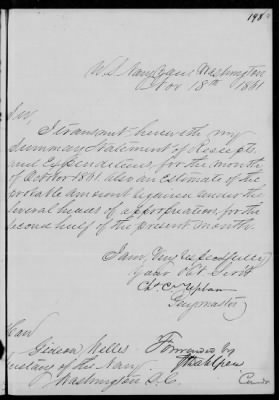 198
U.S. Navy Yard Washington
Nov 18th 1861
Sir,
I transmit herewith my
Summary Statement of Receipts
and Expenditures, for the month
of October 1861. Also an Estimate of the
probable amount required under the
several heads of appropriation, for the
second half of the present month.
I am, Very Respectfully
Your Obt. Servt
Chs C Upham
Paymaster
Hon
Gideon Welles
Secretary of the Navy
Washington D.C.
Forwarded by
Comdr